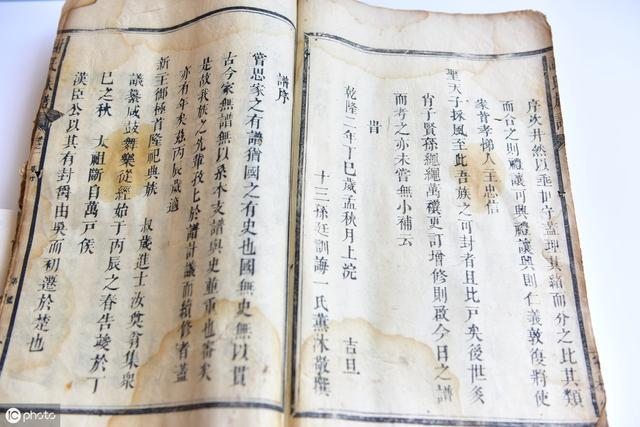 序次井然以垂世守蓋理其緒而分之比其類
而合之則禮讓可興禮讓興則仁義敦復將使
家皆孝悌人正忠信
聖天子採風至此吾族之可封者且比戶矣後世爰
育子賢孫繩繩萬禩更訂增修則啟今日之譜
而考之亦未嘗無小補云
旹
乾隆二年丁巳歲孟秋月上浣 吉旦
十三孫廷訓誨一氏熏沐敬撰
譜序
嘗思家之有譜猶國之有史也國無史無以貫
古今家無譜無以录本支譜與史並重也審矣
是故我族之先輩後上於譜計議而續修者蓋
亦有年矣茲丙辰歲適
新主御極首隆祀典族 叔歲進士汝英翁集眾
議纂咸鼓舞樂從經始于丙辰之春告竣於丁
巳之秋 太祖斷自萬戶侯
漢臣公以其有封爵由吳而初遷於楚也
iC photo